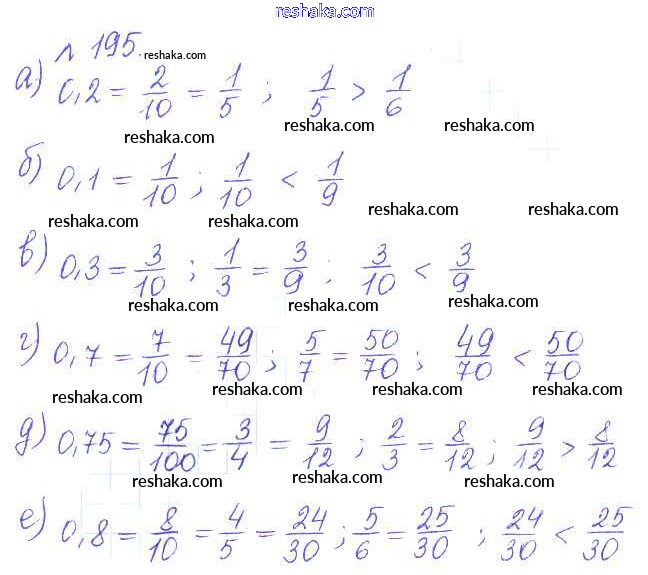 reshaka.com
№ 195. reshaka.com
а) 0,2 = 2/10 = 1/5 ; 1/5 > 1/6
reshaka.com reshaka.com reshaka.com
б) 0,1 = 1/10 ; 1/10 < 1/9
reshaka.com reshaka.com reshaka.com reshaka.com
в) 0,3 = 3/10 ; 1/3 = 3/9 ; 3/10 < 3/9
reshaka.com reshaka.com reshaka.com
г) 0,7 = 7/10 = 49/70 ; 5/7 = 50/70 ; 49/70 < 50/70
reshaka.com reshaka.com reshaka.com reshaka.com
д) 0,75 = 75/100 = 3/4 = 9/12 ; 2/3 = 8/12 ; 9/12 > 8/12
reshaka.com reshaka.com reshaka.com
е) 0,8 = 8/10 = 4/5 = 24/30 ; 5/6 = 25/30 ; 24/30 < 25/30